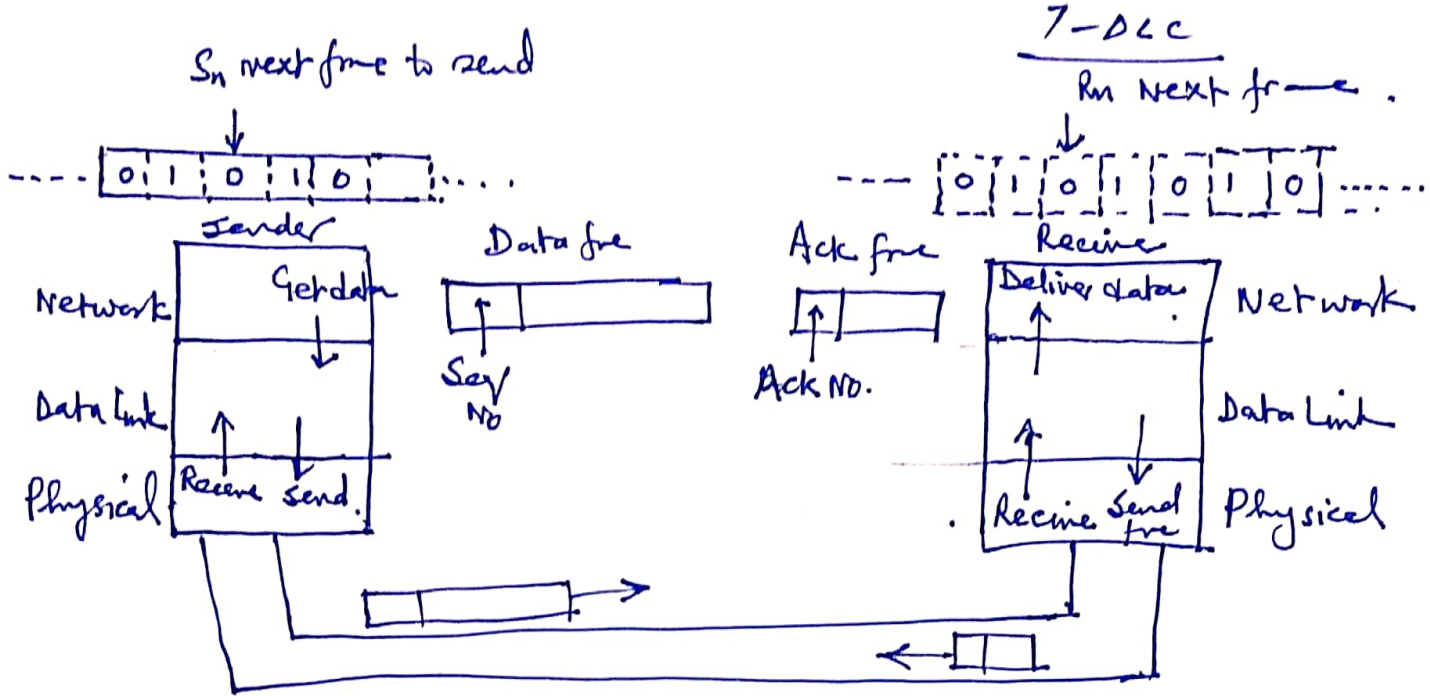 7-DLC
Sn next frme to send
Rn Next frme.
0 1 0 1 0
0 1 0 1 0 1 0
Sender
Data fre
Ack fre
Recive
Network
Get data
Deliver data
Network
Seq No
Ack No.
Data Link
Data Link
Physical
Receve send.
Recive Send fre
Physical